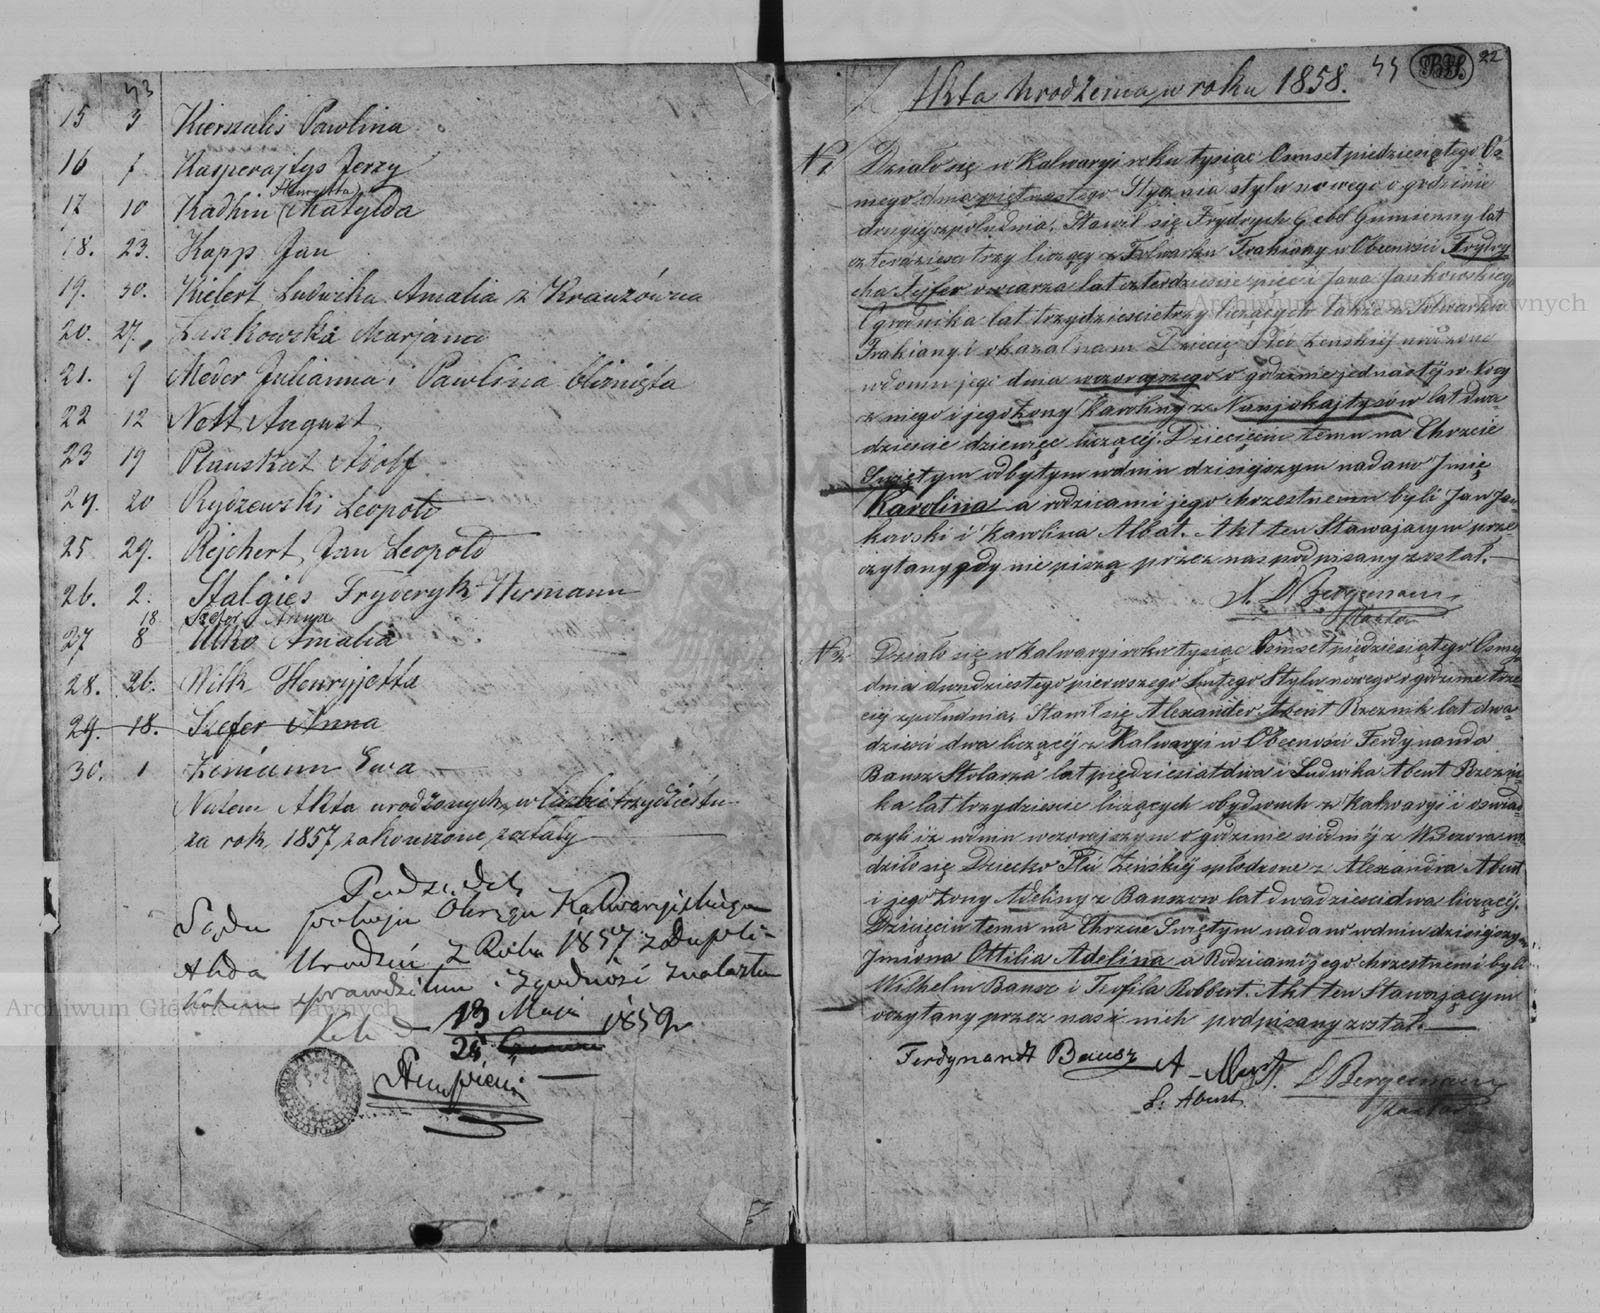 43
15 3 Kierszalis Pawlina
16 7 Kasperajtys Jerzy
Henryetta
17 10 Kadhin Matylda
18. 23. Kapp Jan
19. 30. Kielert Ludwika Amalia z Krauzówna
20. 27. Luszkowska Marjana
21. 9 Meder Julianna i Pawlina bliznięta
22 12 Nett August
23 19 Planskut Adolf
24. 20 Rydzewski Leopold
25 29. Rejchert Jan Leopold
26. 2. Stalgies Fryderyk Herman
18 Szefer Anna
27 8 Utko Amalia
28. 26. Wilk Henryjetta
29. 18. Szefer Anna
30. 1 Zemann Ewa
Numer Akta urodzonych w liczbie trzydziestu
za rok 1857 zakończone zostały
Podsędek
Sądu pokoju Okręgu Kalwaryjskiego
Akta Urodzin z Roku 1857 z dupli-
katem sprawdziłem i zgodność znalazłem
13 Maja
25 1859 r
44 22
Akta Urodzenia w roku 1858.
N 1 Działo się w Kalwaryi roku tysiąc Ośmset piędziesiątego Ós-
mego dnia piętnastego Stycznia stylu nowego o godzinie
drugiej z południa, Stawił się Frydrych Gummenny lat
czterdzieści trzy liczący z Folwarku Trakiany w Obecności Frydry
cha Fejfer owczarza lat czterdzieście pięc i Jana Jankowskiego
Ogrodnika lat trzydzieście trzy liczących także z Folwarku
Trakiany i okazał nam Dziecię Płci żeńskiéj urodzone
w domu jego dnia wczorajszego o godzinie jednastéj w Nocy
z niego i jego Żony Karoliny z Nanjokajtysów lat dwa-
dzieście dziewięc liczącéj. Dziecięciu temu na Chrzcie
Świętym odbytym w dniu dzisiejszym nadano Jmię
Karolina a rodzicami jego chrzestnemi byli Jan Jan-
kowski i Karolina Albat. Akt ten Stawającym prze-
czytany gdy nie piszą przez nas podpisany został.
Bergemann
Pastor
N 2 Działo się w Kalwaryi roku tysiąc Ośmset piędziesiątego Osmego
dnia dwudziestego pierwszego Lutego Stylu nowego o godzinie trze-
ciéj z południa, Stawił się Alexander Abent Rzeznik lat dwa-
dzieści dwa liczącéj z Kalwaryi w Obecności Ferdynanda
Bausz Stolarza lat piędziesiąt dwa i Ludwika Abent Rzezni-
ka lat trzydzieście liczących obydwuch z Kalwaryi i oswiad-
czyli iż w dniu wczorajszym o godzinie siódméj z Wieczora uro-
dziło się Dziecko Płci Żeńskiéj spłodzone z Alexandra Abent
i jego Żony Adeliny z Bauszow lat dwadzieścia dwa liczącéj.
Dziecięciu temu na Chrzcie Świętym nadano w dniu dzisiejszym
Jmiona Ottilia Adelina a Rodzicami jego chrzestnemi byli
Wilhelm Bausz i Teofila Robbert. Akt ten Stawającym
czytany przez nas i nich podpisany został.
Ferdynandt Bausz A. Abent
L. Abent
Bergemann
Pastor
Archiwum Główne Akt Dawnych
Archiwum Główne Akt Dawnych